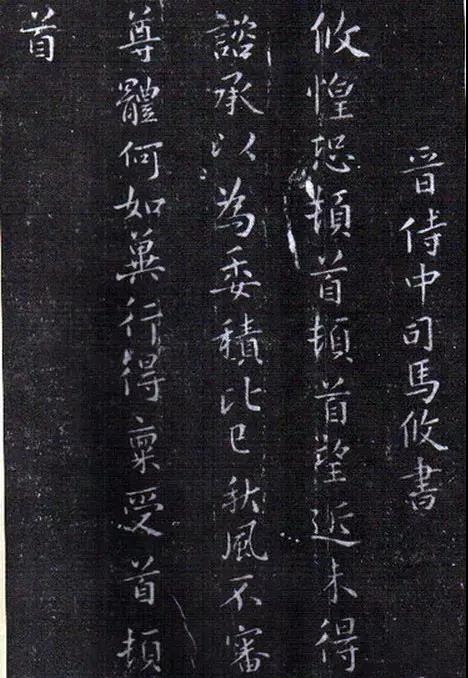 晉侍中司馬攸書
攸惶恐頓首頓首望近未得
諮承以為委積比已秋風不審
尊體何如冀行得稟受首頓
首